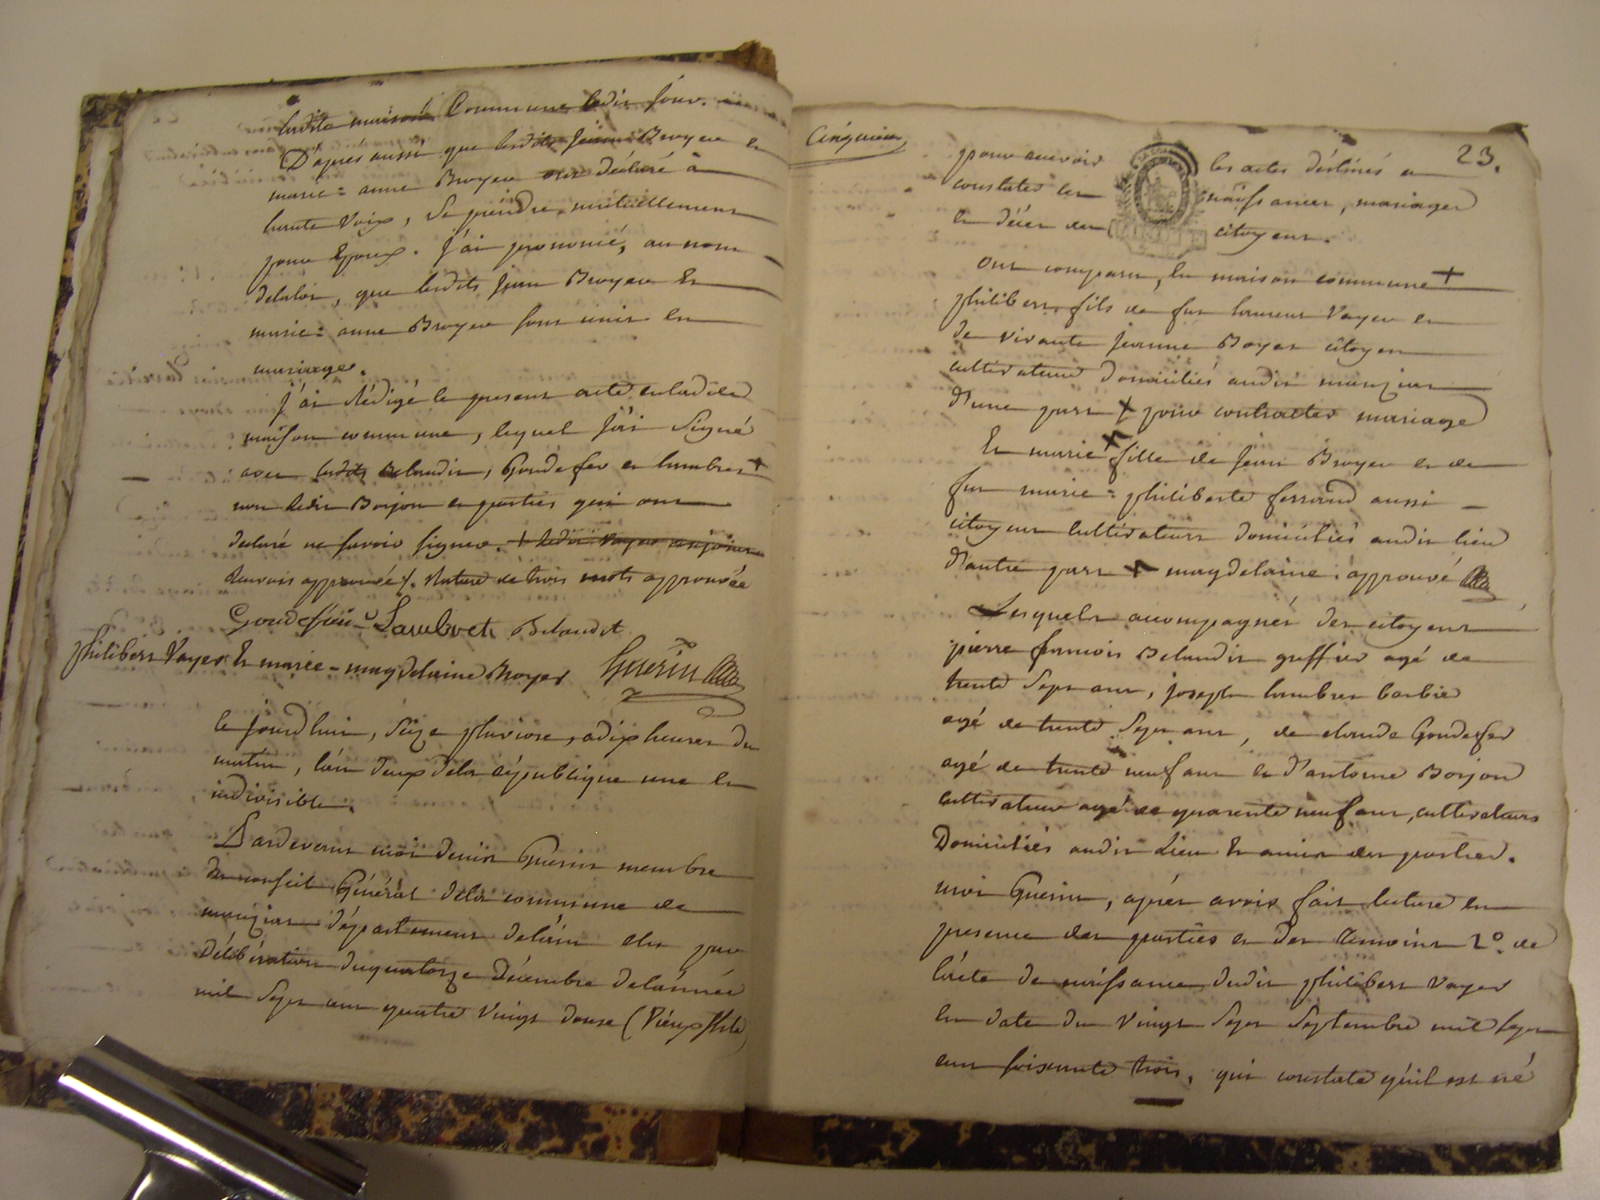 ladite maison Commune ledit jour.
D'après aussi que lesdits Jean Broyer et
marie = anne Broyer ont déclaré à
haute voix, se prendre mutuellement
pour Epoux. J'ai prononcé, au nom
delaloi, que lesdits Jean Broyer Et
marie = anne Broyer sont unis en
mariage.
J'ai Rédigé le present acte en ladite
maison commune, lequel J'ai Signé
avec lesdits Belaudit, Gondefer et lambret +
non ledit Borjon et parties qui ont
declaré ne savoir signer. + ledit Voyer
approuvée/. Rature de trois mots approuvée
Gondefer Lambret Belaudit
philibert Voyer Et marie = magdelaine Broyer Guerin
ce Jourdhui, seize pluviose, a dix heures du
matin, l'an Deux dela république une et
indivisible.
Pardevant moi denis Guerin membre
du conseil Général dela commune de
département delain elu par
Délibération du quatorze Décembre delannée
mil sept cent quatre vingt douze (Vieux Stile)
Cinquieme
23.
pour recevoir les actes destinés a
constater les naissances, mariages
et décès des citoyens.
Ont comparu, en maison commune +
philibert fils de feu laurent Voyer et
de vivante Jeanne Boyer citoyen
cultivateur domiciliés audit
D'une part + pour contracter mariage
Et marie + fille de Jean Broyer et de
feu marie = philiberte ferrand aussi
citoyens cultivateurs domiciliés audit lieu
D'autre part + magdelaine : approuvé
Lesquels accompagnés des citoyens
pierre francois Belaudit greffier agé de
trente Sept ans, joseph lambret barbier
agé de trente Sept ans, de claude Gondefer
agé de trente neuf ans et d'antoine Borjon
cultivateur agé de quarente neuf ans, cultivateurs
Domiciliés audit Lieu Et amis des parties.
moi Guerin, après avoir fait lecture en
presence des parties et des temoins 1.º de
l'acte de naissance dudit philibert Voyer
en date du Vingt Sept Septembre mil sept
cent soixante trois, qui constate qu'il est né